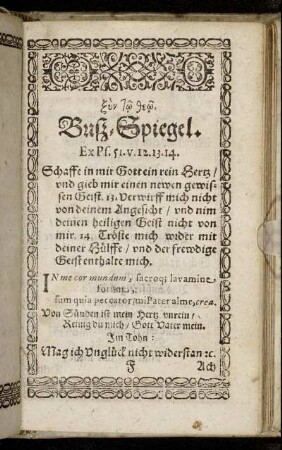 ξὺν τῷ θεῷ.
Buß-Spiegel.
Ex Ps. 51. v. 12. 13. 14.
Schaffe in mir Gott ein rein Hertz /
vnd gieb mir einen newen gewis-
sen Geist. 13. Verwirff mich nicht
von deinem Angesicht / vnd nim
deinen heiligen Geist nicht von
mir. 14. Tröste mich wider mit
deiner Hülffe / vnd der frewdige
Geist enthalte mich.
IN me cor mundum, sacroq; lavamine
sum quia peccator, Pater alme, crea.
Von Sünden ist mein Hertz vnrein /
Reinig du mich / Gott Vater mein.
Im Tohn:
Mag ich Vnglück nicht widerstan ꝛc.
F Ach